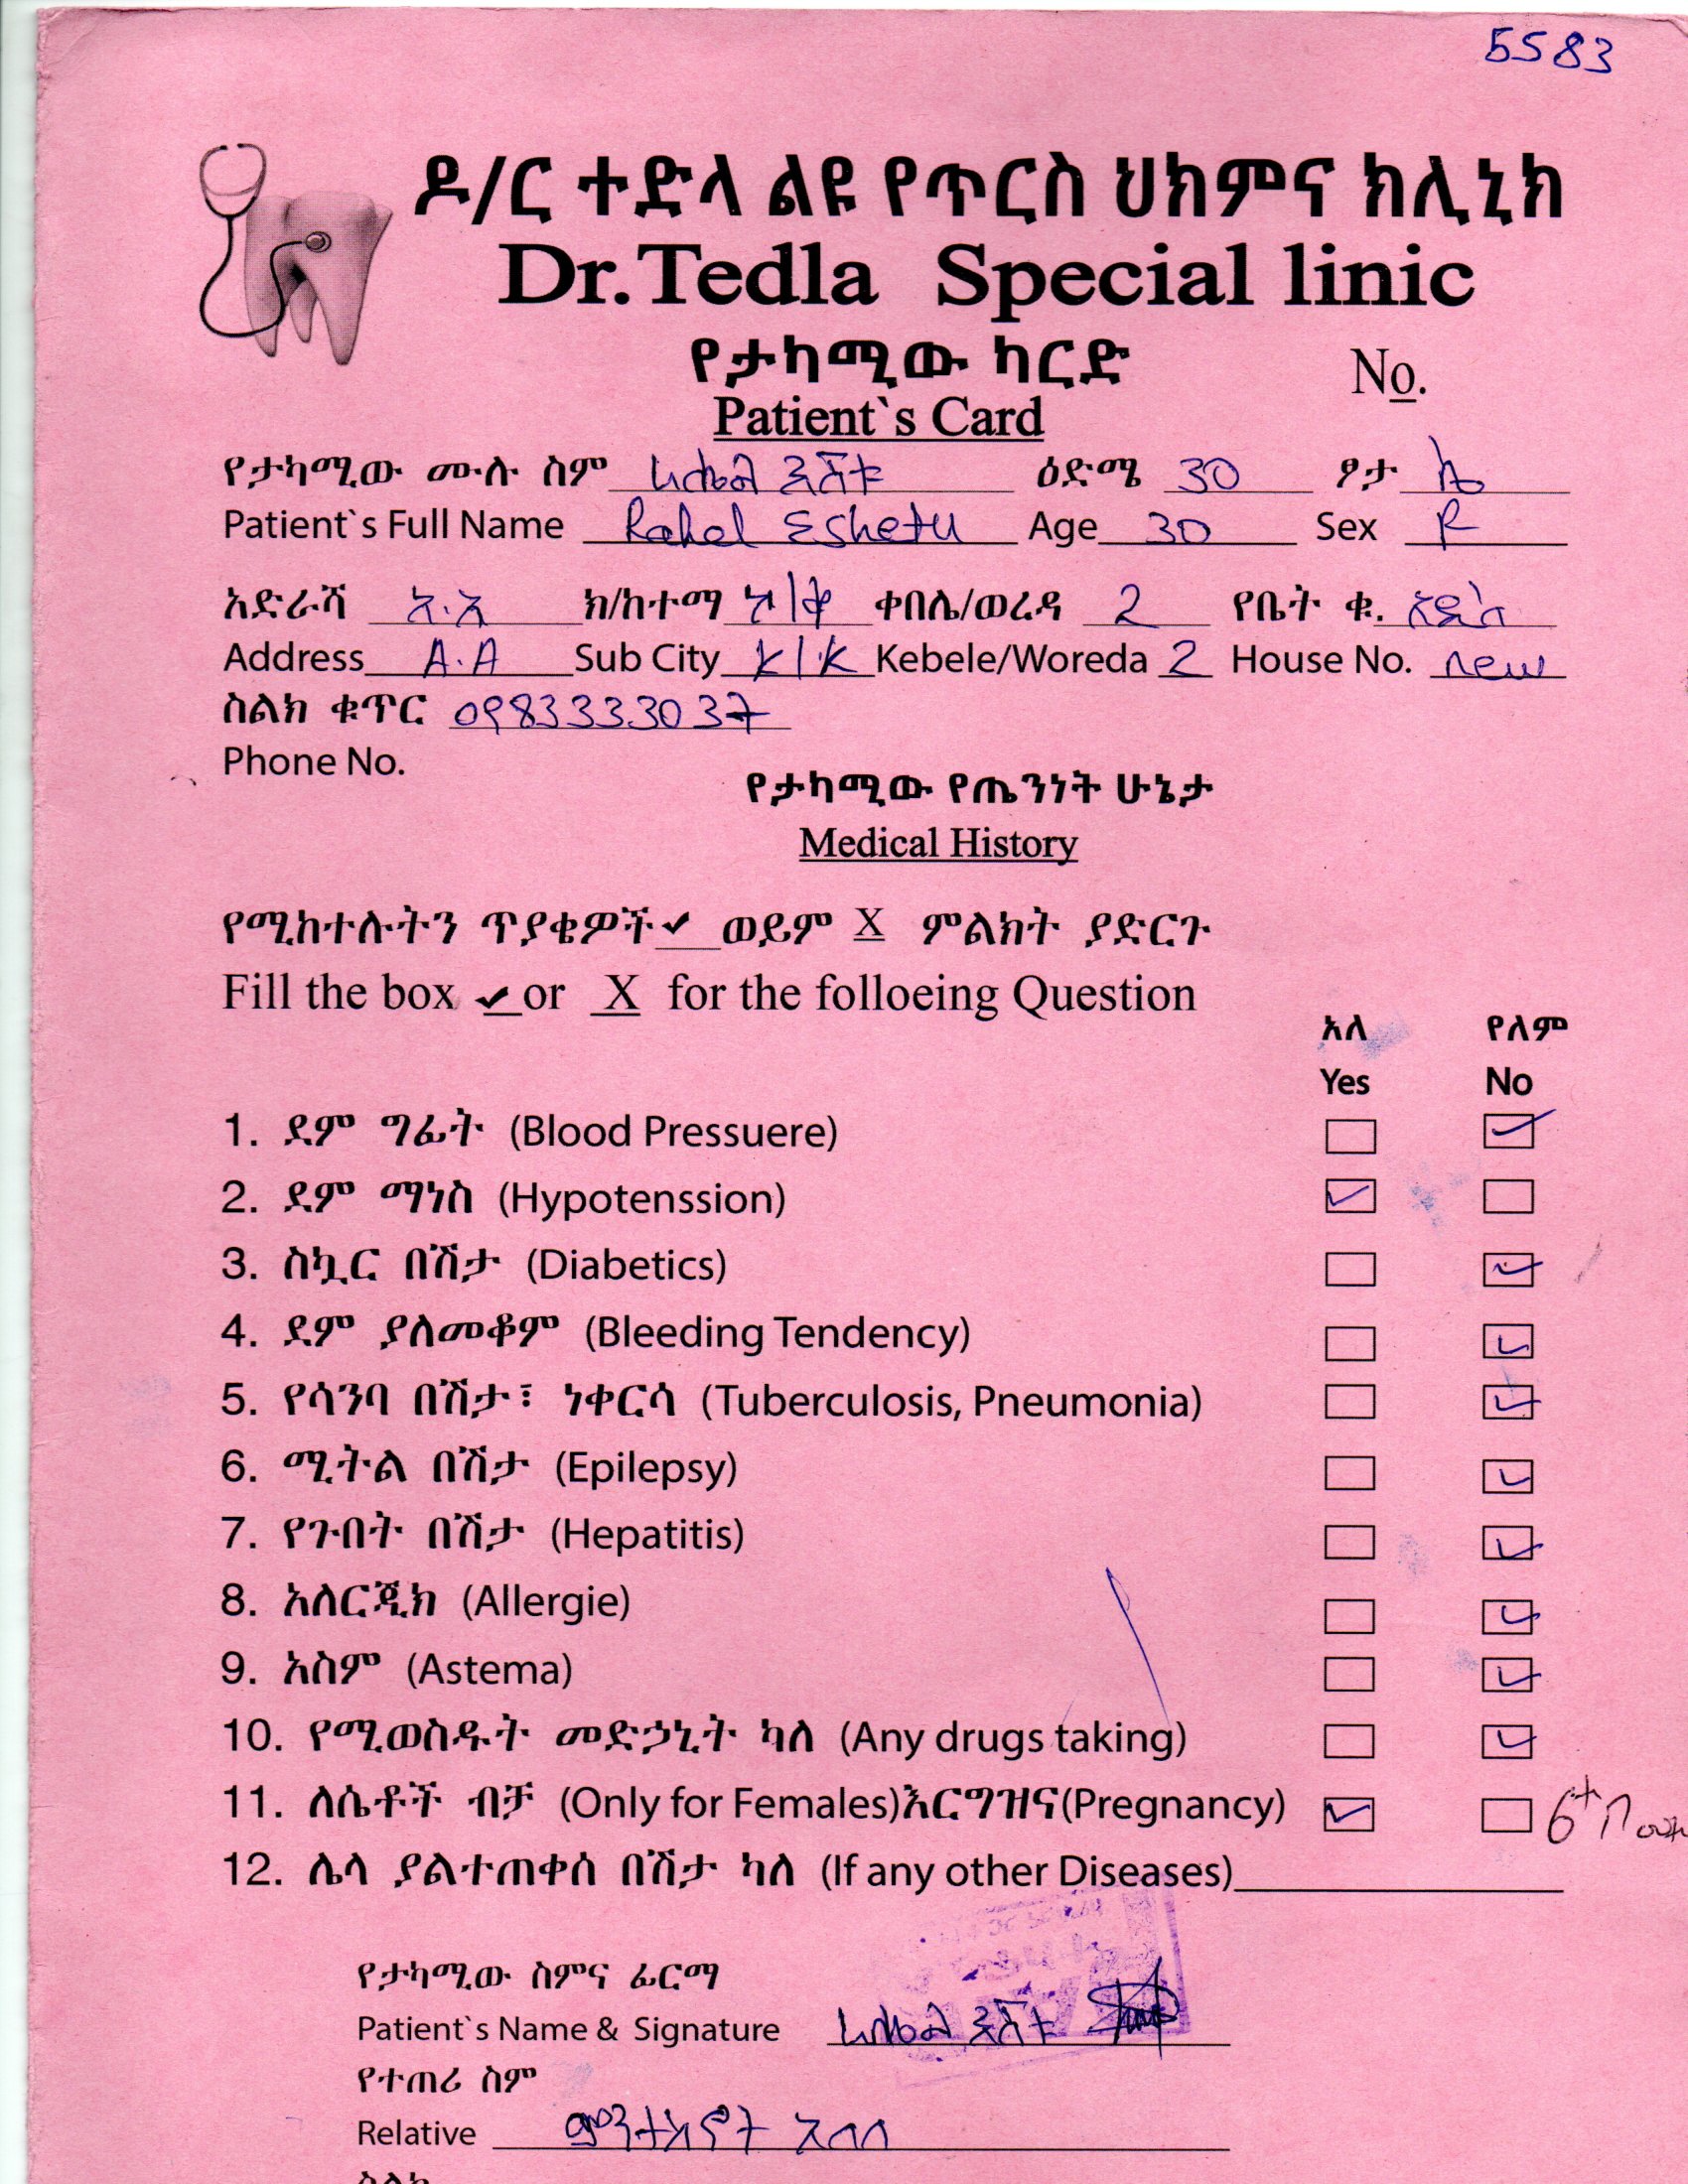 5583
ዶ/ር ተድላ ልዩ የጥርስ ህክምና ክሊኒክ
Dr.Tedla Special linic
የታካሚው ካርድ
No.
Patient`s Card
የታካሚው ሙሉ ስም ራሄል እሸቱ ዕድሜ 30 ፆታ ሴ
Patient`s Full Name Rahel Eshetu Age 30 Sex F
አድራሻ አ.አ ክ/ከተማ ን/ቀ ቀበሌ/ወረዳ 2 የቤት ቁ. አዲስ
Address A.A Sub City K/K Kebele/Woreda 2 House No. new
ስልክ ቁጥር 0983333037
Phone No.
የታካሚው የጤንነት ሁኔታ
Medical History
የሚከተሉትን ጥያቄዎች ✓ ወይም X ምልክት ያድርጉ
Fill the box ✓ or X for the folloeing Question
አለ የለም
Yes No
1. ደም ግፊት (Blood Pressuere)
2. ደም ማነስ (Hypotenssion)
3. ስኳር በሽታ (Diabetics)
4. ደም ያለመቆም (Bleeding Tendency)
5. የሳንባ በሽታ፣ ነቀርሳ (Tuberculosis, Pneumonia)
6. ሚትል በሽታ (Epilepsy)
7. የጉበት በሽታ (Hepatitis)
8. አለርጂክ (Allergie)
9. አስም (Astema)
10. የሚወስዱት መድኃኒት ካለ (Any drugs taking)
11. ለሴቶች ብቻ (Only for Females)እርግዝና(Pregnancy) 6
12. ሌላ ያልተጠቀሰ በሽታ ካለ (If any other Diseases)
የታካሚው ስምና ፊርማ
Patient`s Name & Signature ራሄል እሸቱ
የተጠሪ ስም
Relative